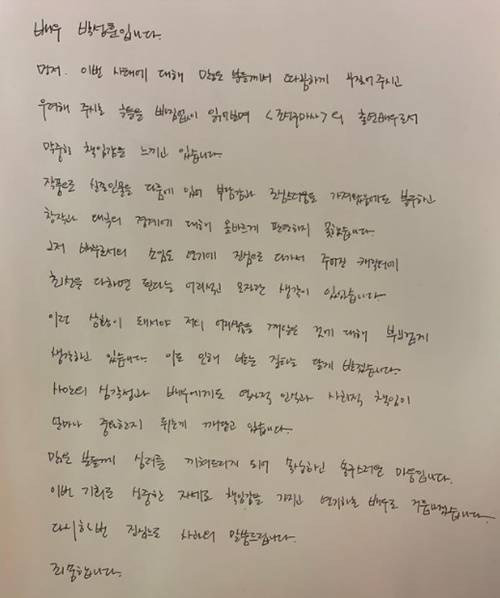 배우 박성훈입니다.
먼저, 이번 사태에 대해 많은 분들께서 따끔하게 꾸짖어 주시고
우려해 주시는 글들을 빠짐없이 읽어보며 <조선구마사>의 출연배우로서
막중한 책임감을 느끼고 있습니다.
작품으로 실존인물을 다룸에 있어 부담감과 조심스러움도 가져왔음에도 불구하고
창작과 왜곡의 경계에 대해 올바르게 판단하지 못했습니다.
그저 배우로서의 소임은 연기에 진심으로 다가서 주어진 캐릭터에
최선을 다하면 된다는 어리석고 모자란 생각이 있었습니다.
이런 상황이 돼서야 저의 어리석음을 깨달은 것에 대해 부끄럽게
생각하고 있습니다. 이로 인해 받는 질타는 달게 받겠습니다.
사안의 심각성과 배우에게도 역사적 인식과 사회적 책임이
얼마나 중요한지 뒤늦게 깨닫고 있습니다.
많은 분들께 심려를 끼쳐드리게 되어 죄송하고 송구스러운 마음입니다.
이번 기회로 신중한 자세로 책임감을 가지고 연기하는 배우로 거듭나겠습니다.
다시 한번 진심으로 사과의 말씀드립니다.
죄송합니다.